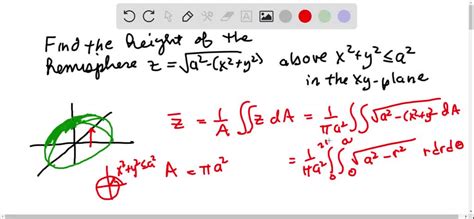 Find the height of the
hemisphere z = √(a²-(x²+y²)) above x²+y² ≤ a²
in the xy-plane
z̄ = 1/A ∬ z dA = 1/(πa²) ∬ √(a²-(x²+y²)) dA
x²+y² ≤ a² A = πa²
= 1/(πa²) ∫₀^2π ∫₀^a √(a²-r²) r dr dθ